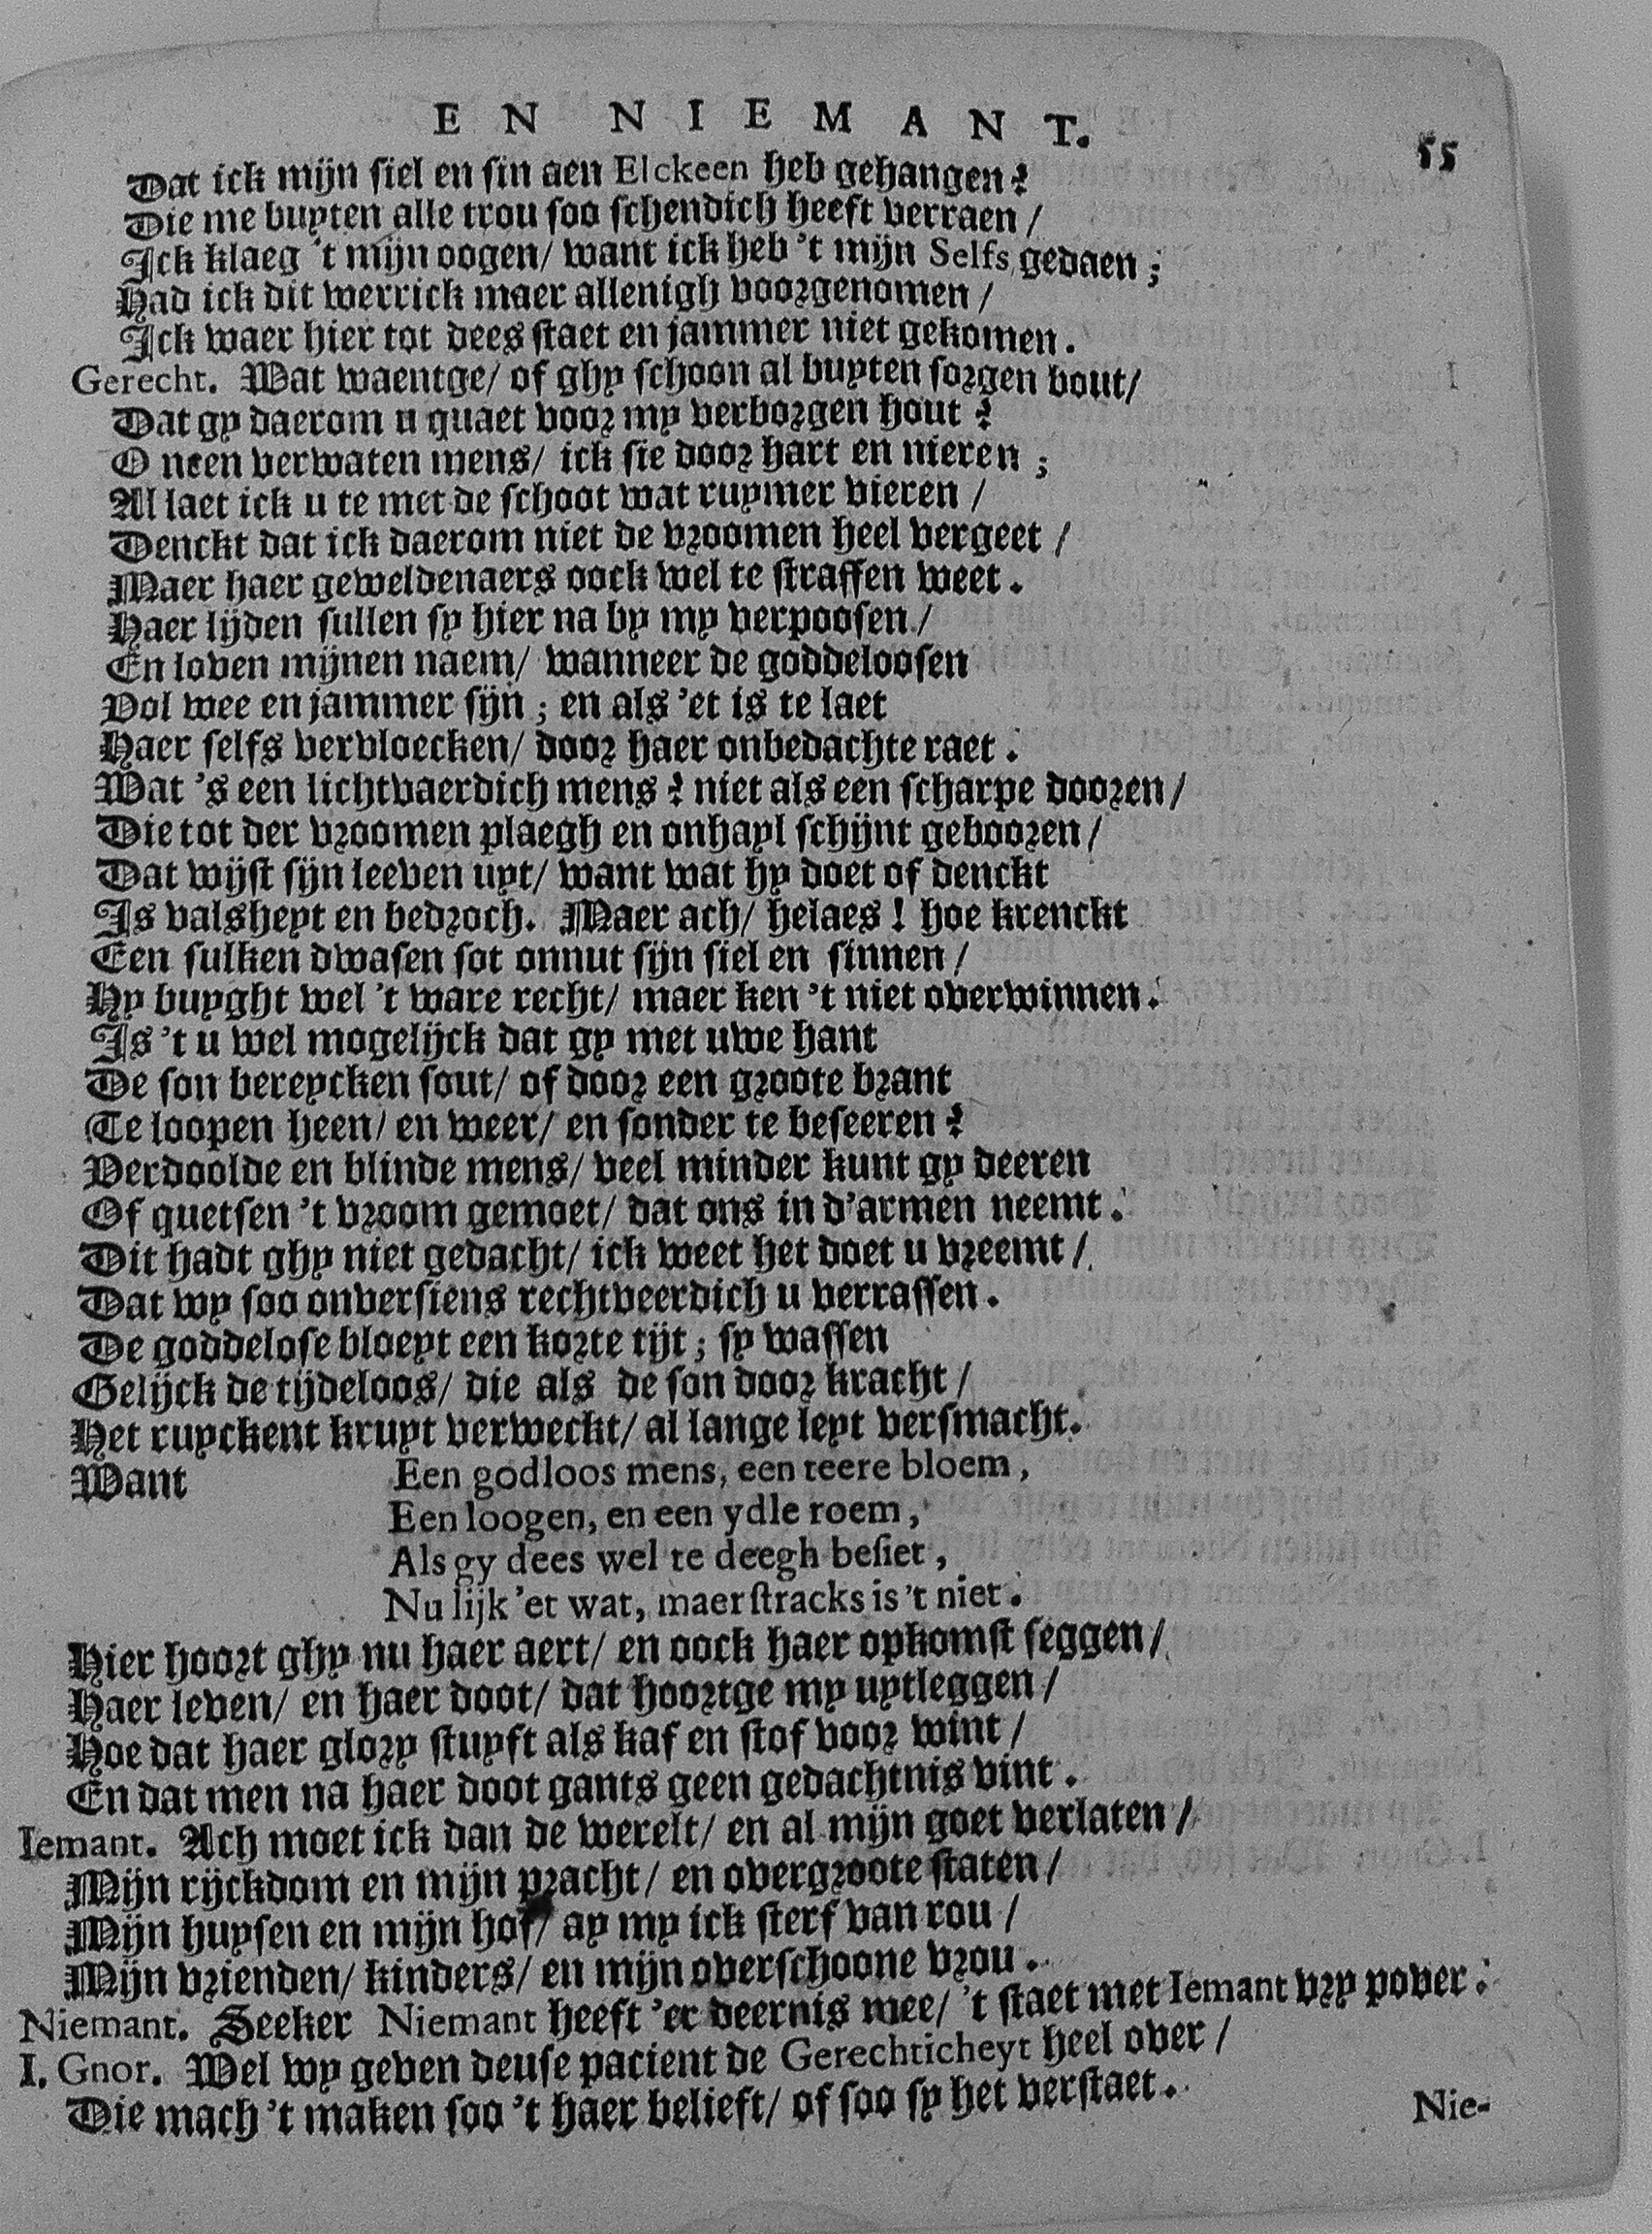 EN NIEMANT. 55
Dat ick mijn siel en sin aen Elckeen heb gehangen?
Die me buyten alle trou soo schendich heeft verraen /
Ick klaeg 't mijn oogen / want ick heb 't mijn Selfs gedaen ;
Had ick dit werrick maer allenigh voorgenomen /
Ick waer hier tot dees staet en jammer niet gekomen.
Gerecht. Wat waentge / of ghy schoon al buyten sorgen bout /
Dat gy daerom u quaet voor my verborgen hout ?
O neen verwaten mens / ick sie door hart en nieren ;
Al laet ick u te met de schoot wat ruymer vieren /
Denckt dat ick daerom niet de vroomen heel vergeet /
Maer haer geweldenaers oock wel te straffen weet.
Haer lijden sullen sy hier na by my verpoosen /
En loven mijnen naem / wanneer de goddeloosen
Vol wee en jammer sijn ; en als 'et is te laet
Haer selfs vervloecken / door haer onbedachte raet.
Wat 's een lichtvaerdich mens ? niet als een scharpe dooren /
Die tot der vroomen plaegh en onhayl schijnt gebooren /
Dat wijst sijn leeven uyt / want wat hy doet of denckt
Is valsheyt en bedroch. Maer ach / helaes ! hoe krenckt
Een sulken dwasen sot onnut sijn siel en sinnen /
Hy buyght wel 't ware recht / maer ken 't niet overwinnen.
Is 't u wel mogelijck dat gy met uwe hant
De son bereycken sout / of door een groote brant
Te loopen heen / en weer / en sonder te beseeren ?
Verdoolde en blinde mens / veel minder kunt gy deeren
Of quetsen 't vroom gemoet / dat ons in d'armen neemt.
Dit hadt ghy niet gedacht / ick weet het doet u vreemt /
Dat wy soo onversiens rechtveerdich u verrassen.
De goddelose bloeyt een korte tijt ; sy wassen
Gelijck de tijdeloos / die als de son door kracht /
Het ruyckent kruyt verweckt / al lange leyt versmacht.
Want Een godloos mens, een teere bloem,
Een loogen, en een ydle roem,
Als gy dees wel te deegh besiet,
Nu lijk 'et wat, maer stracks is 't niet.
Hier hoort ghy nu haer aert / en oock haer opkomst seggen /
Haer leven / en haer doot / dat hoortge my uytleggen /
Hoe dat haer glory stuyft als kaf en stof voor wint /
En dat men na haer doot gants geen gedachtnis vint.
Iemant. Ach moet ick dan de werelt / en al mijn goet verlaten /
Mijn rijckdom en mijn pracht / en overgroote staten /
Mijn huysen en mijn hof / ay my ick sterf van rou /
Mijn vrienden / kinders / en mijn overschoone vrou.
Niemant. Seeker Niemant heeft 'er deernis mee / 't staet met Iemant vry pover.
I. Gnor. Wel wy geven deuse pacient de Gerechticheyt heel over /
Die mach 't maken soo 't haer belieft / of soo sy het verstaet.
Nie-